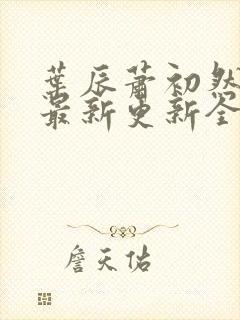 葉辰蕭初然
最新更新全
詹天佑